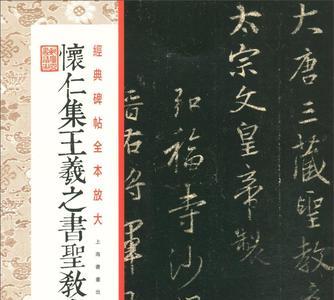 經典碑帖全本放大
懷仁集王羲之書聖教
上海書畫出
大唐三藏聖教
太宗文皇帝製
弘福寺沙
晉右將軍